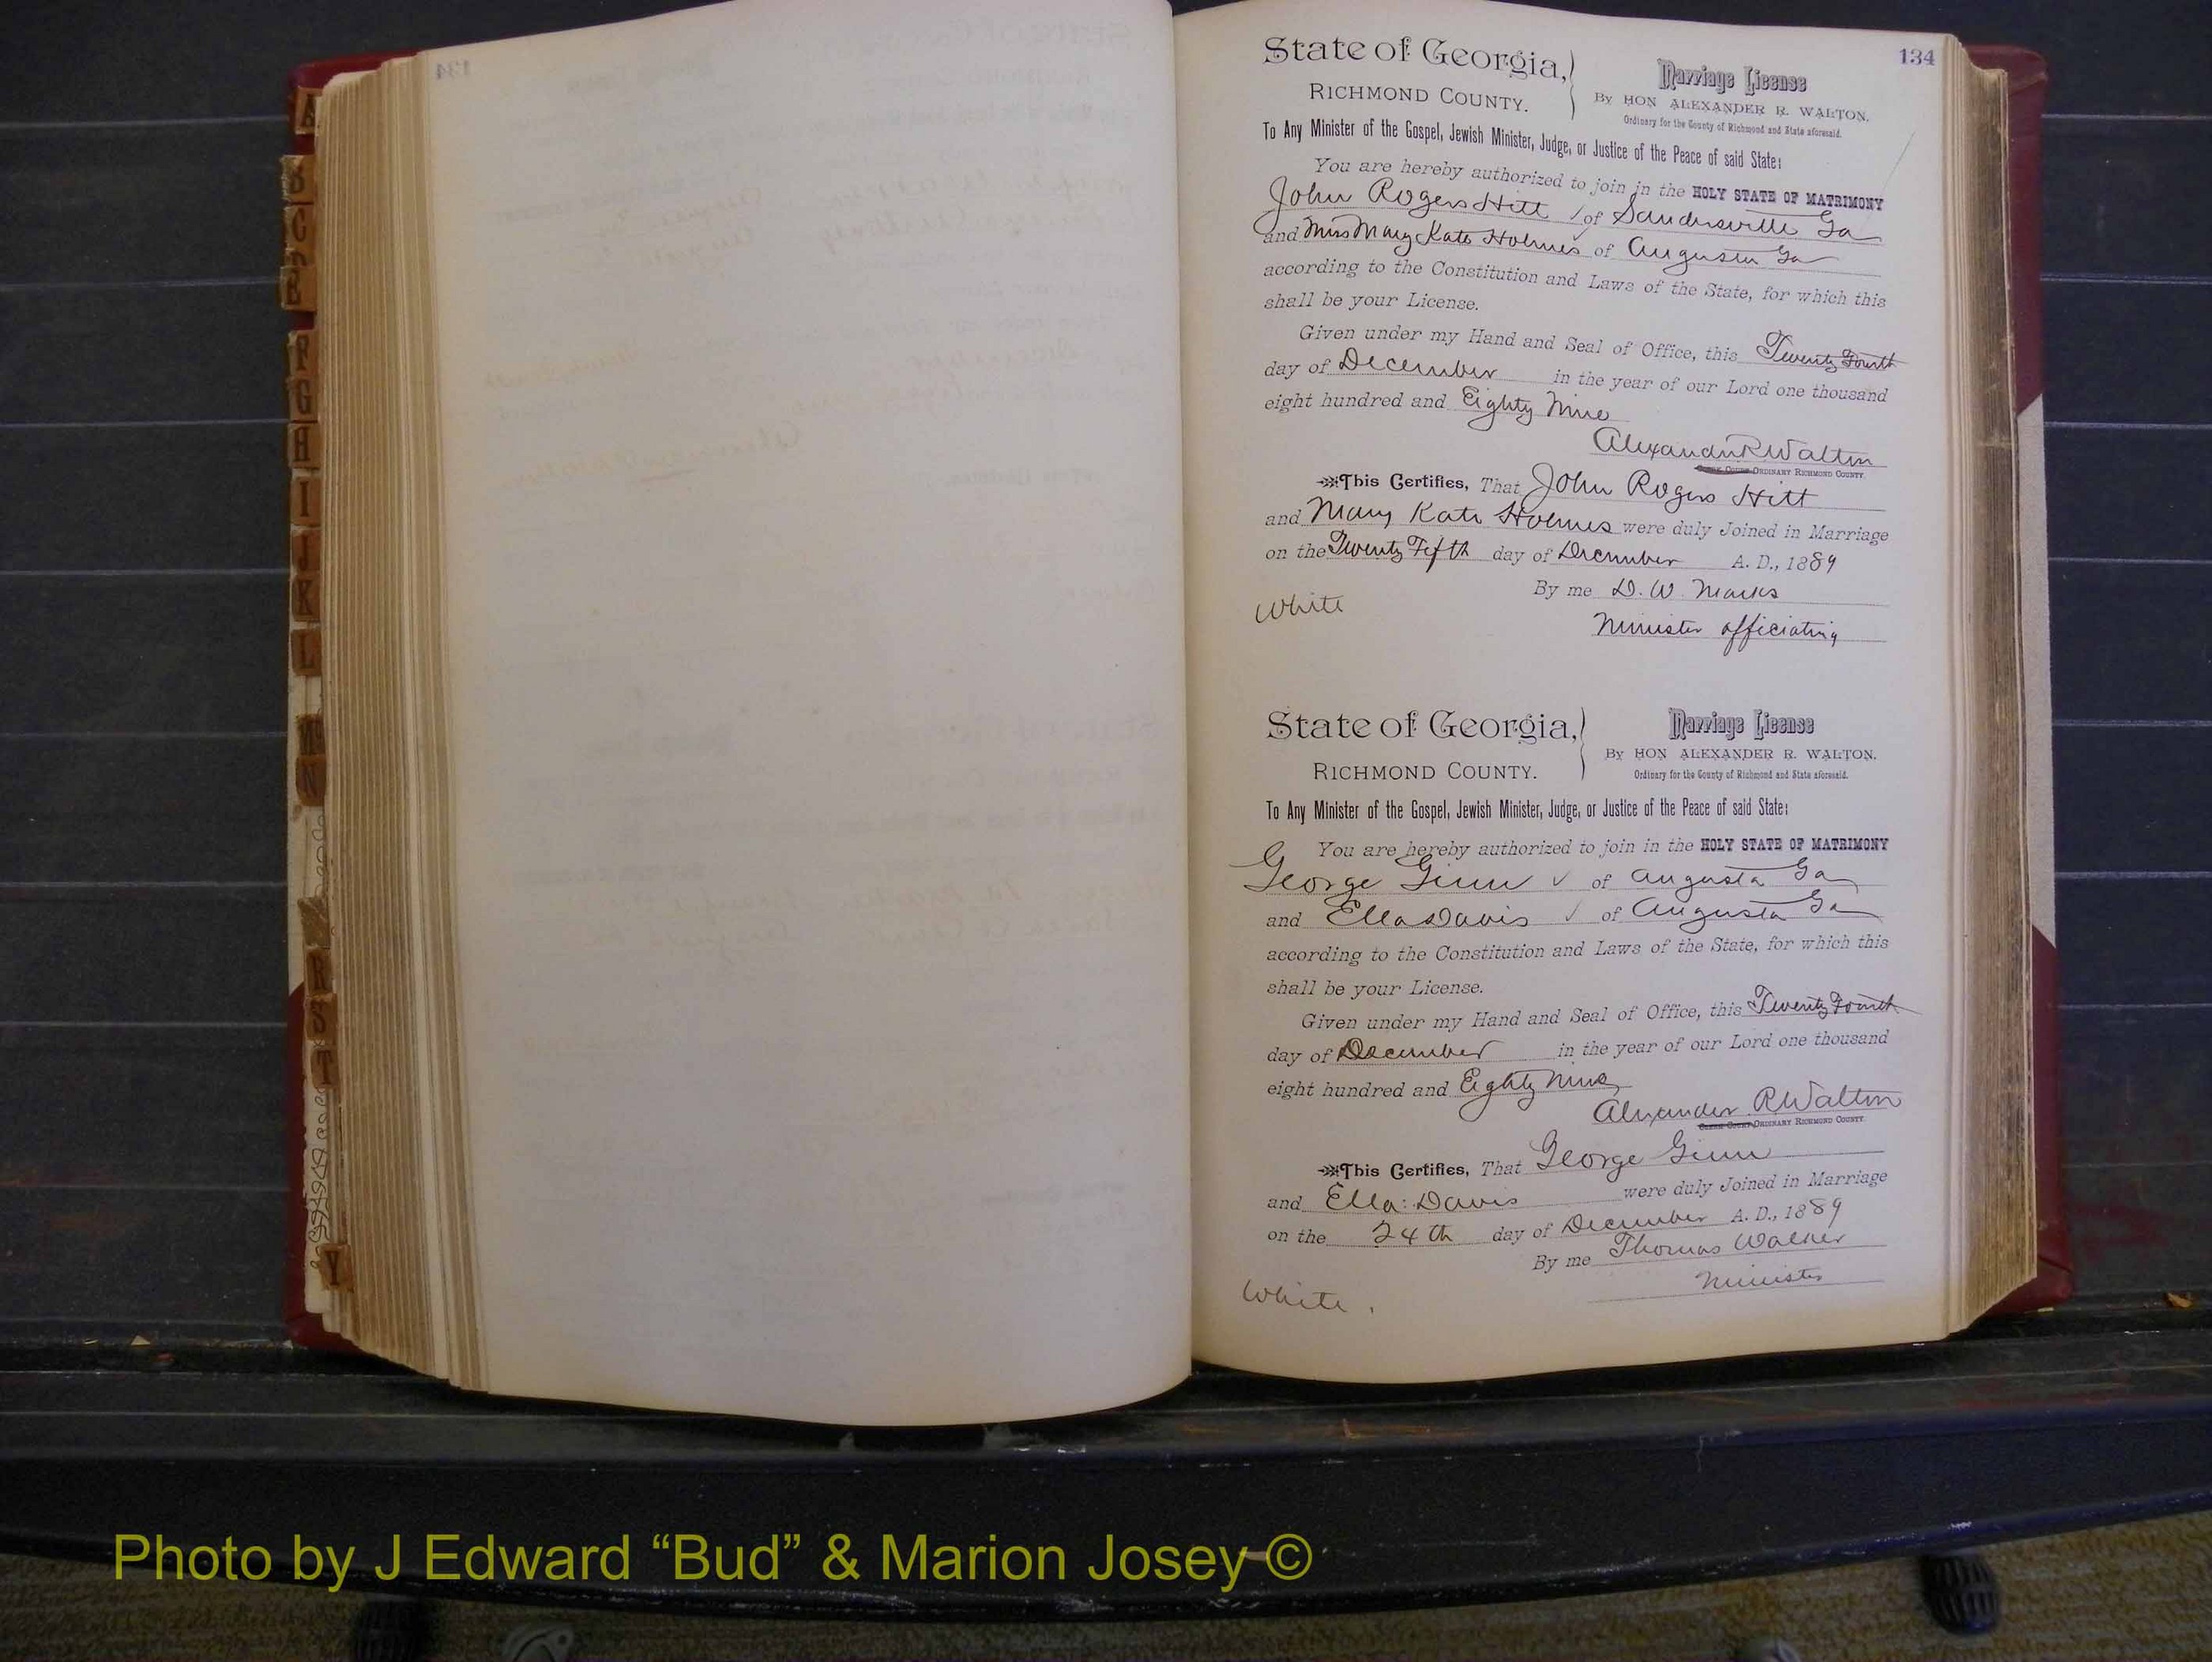 134
State of Georgia,
RICHMOND COUNTY.
Marriage License
By HON ALEXANDER R. WALTON.
Ordinary for the County of Richmond and State aforesaid.
To Any Minister of the Gospel, Jewish Minister, Judge, or Justice of the Peace of said State:
You are hereby authorized to join in the HOLY STATE OF MATRIMONY
John Rogers Hitt of Sandersville Ga
and Miss Mary Kate Holmes of Augusta Ga
according to the Constitution and Laws of the State, for which this
shall be your License.
Given under my Hand and Seal of Office, this Twenty Fourth
day of December in the year of our Lord one thousand
eight hundred and Eighty Nine
Alexander R Walton
CLERK COURT ORDINARY RICHMOND COUNTY.
This Certifies, That John Rogers Hitt
and Mary Kate Holmes were duly Joined in Marriage
on the Twenty Fifth day of December A. D., 1889
By me D. W. Marks
White
Minister officiating
State of Georgia,
RICHMOND COUNTY.
Marriage License
By HON ALEXANDER R. WALTON.
Ordinary for the County of Richmond and State aforesaid.
To Any Minister of the Gospel, Jewish Minister, Judge, or Justice of the Peace of said State:
You are hereby authorized to join in the HOLY STATE OF MATRIMONY
George Ginn of Augusta Ga
and Ella Davis of Augusta Ga
according to the Constitution and Laws of the State, for which this
shall be your License.
Given under my Hand and Seal of Office, this Twenty Fourth
day of December in the year of our Lord one thousand
eight hundred and Eighty Nine
Alexander R Walton
CLERK COURT ORDINARY RICHMOND COUNTY.
This Certifies, That George Ginn
and Ella Davis were duly Joined in Marriage
on the 24th day of December A. D., 1889
By me Thomas Walker
Minister
White.
A
B
C
F
G
H
I
J
K
L
Mc
N
R
S
T
Y
Photo by J Edward “Bud” & Marion Josey ©